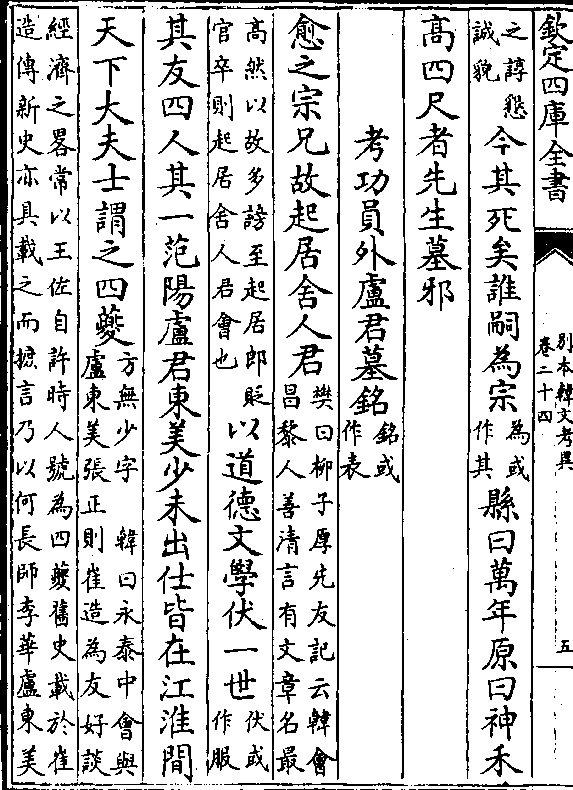 欽定四庫全書
別本韓文考異
卷二十四
五
之諄懇
誠貌
今其死矣誰嗣為宗
為或
作其
縣曰萬年原曰神禾
高四尺者先生墓邪
考功員外盧君墓銘
銘或
作表
愈之宗兄故起居舍人君
樊曰柳子厚先友記云韓會
昌黎人善清言有文章名最
高然以故多謗至起居郎貶
官卒則起居舍人君會也
以道德文學伏一世
伏或
作服
其友四人其一范陽盧君東美少未出仕皆在江淮間
天下大夫士謂之四夔
方無少字 韓曰永泰中會與
盧東美張正則崔造為友好談
經濟之畧常以王佐自許時人號為四夔舊史載於崔
造傳新史亦具載之而摭言乃以何長師李華盧東美